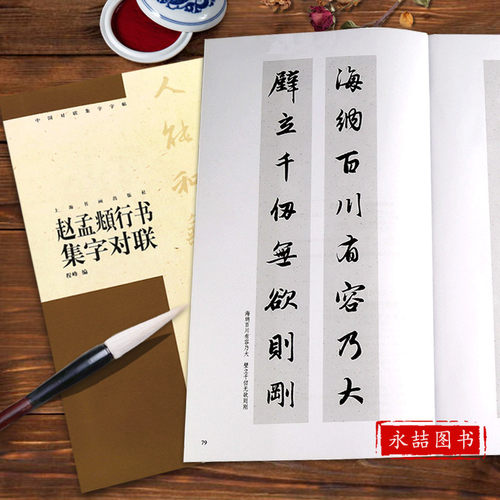 中国对联集字字帖
人能和
上海书画出版社
赵孟頫行书
集字对联
程峰 编
海納百川有容乃大
壁立千仞無欲則剛
海纳百川有容乃大 壁立千仞无欲则刚
79
永喆图书